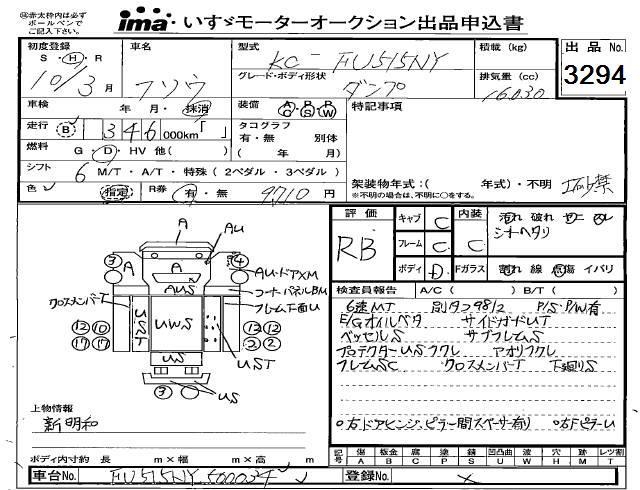 ㊟赤太枠内は必ず
ボールペンで
ご記入下さい。
ima いすゞモーターオークション出品申込書
初度登録
S・H・R
10/3月
車名
フソウ
型式
KC-FU515NY
グレード・ボディ形状
ダンプ
積載(kg)
排気量(cc)
16030
出品No.
3294
車検 年・月・抹消
走行 B 1 346 000km「 」
燃料 G・D・HV 他( )
シフト 6 M/T・A/T・特殊(2ペダル・3ペダル)
色 指定 R券 有・無 9710円
装備 A P P
G S W
タコグラフ
有・無 別体
( 年 月)
特記事項
架装物年式:( 年式)・不明
※不明の場合は、不明に○をする。
評価
RB
キャブ C
フレーム C
ボディ D
内装 C
Fガラス
汚れ 破れ
シートヘタリ
割れ 線 点傷 イバリ
検査員報告 A/C( ) B/T( )
6速MT 別タコ98/2 P/S・P/W有
E/Gオイルベタ サイドガードUT
ベッセルS サブフレムS
プロテクターUSフクレ アオリフクレ
フレムSC クロスメンバーT 下廻りS
右ドアヒンジ、ピラー間スペーサ有り 右FピラーU
A
AU
A
AUS
AU・ドアXM
コーナーパネルBM
フレーム下面U
クロスメンバーT
UST
UWS
UST
US
US
③
④
⑫ ⑩
⑰ ⑰
⑫ ⑫
② ②
③
上物情報
新明和
ボディ内寸約 長 m×幅 m×高 m
記号 傷 A 板金 B 腐 C 塗 P 錆 S 凹凸曲 U 波 W 穴 H 跡 M レツ割 T
車台No. FU515NY-500034
登録No.